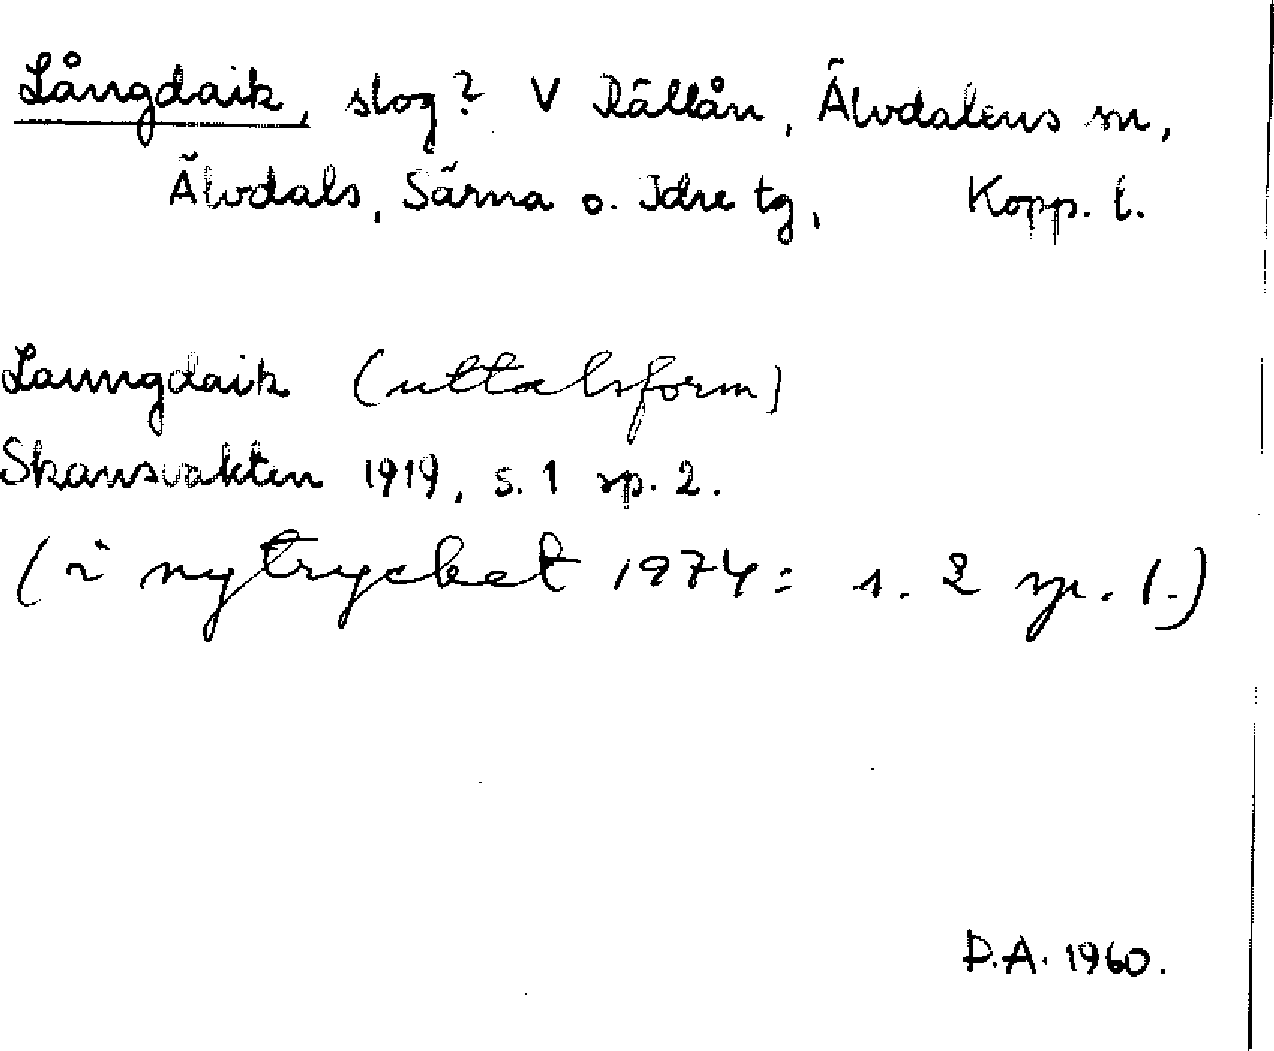 Långdaik, slog? V Rällån, Älvdalens sn,
Älvdals, Särna o. Idre tg, Kopp. l.
Laungdaik (uttalsform)
Skansvakten 1919, s. 1 sp. 2.
(i nytrycket 1974: s. 2 sp. 1.)
D.A. 1960.